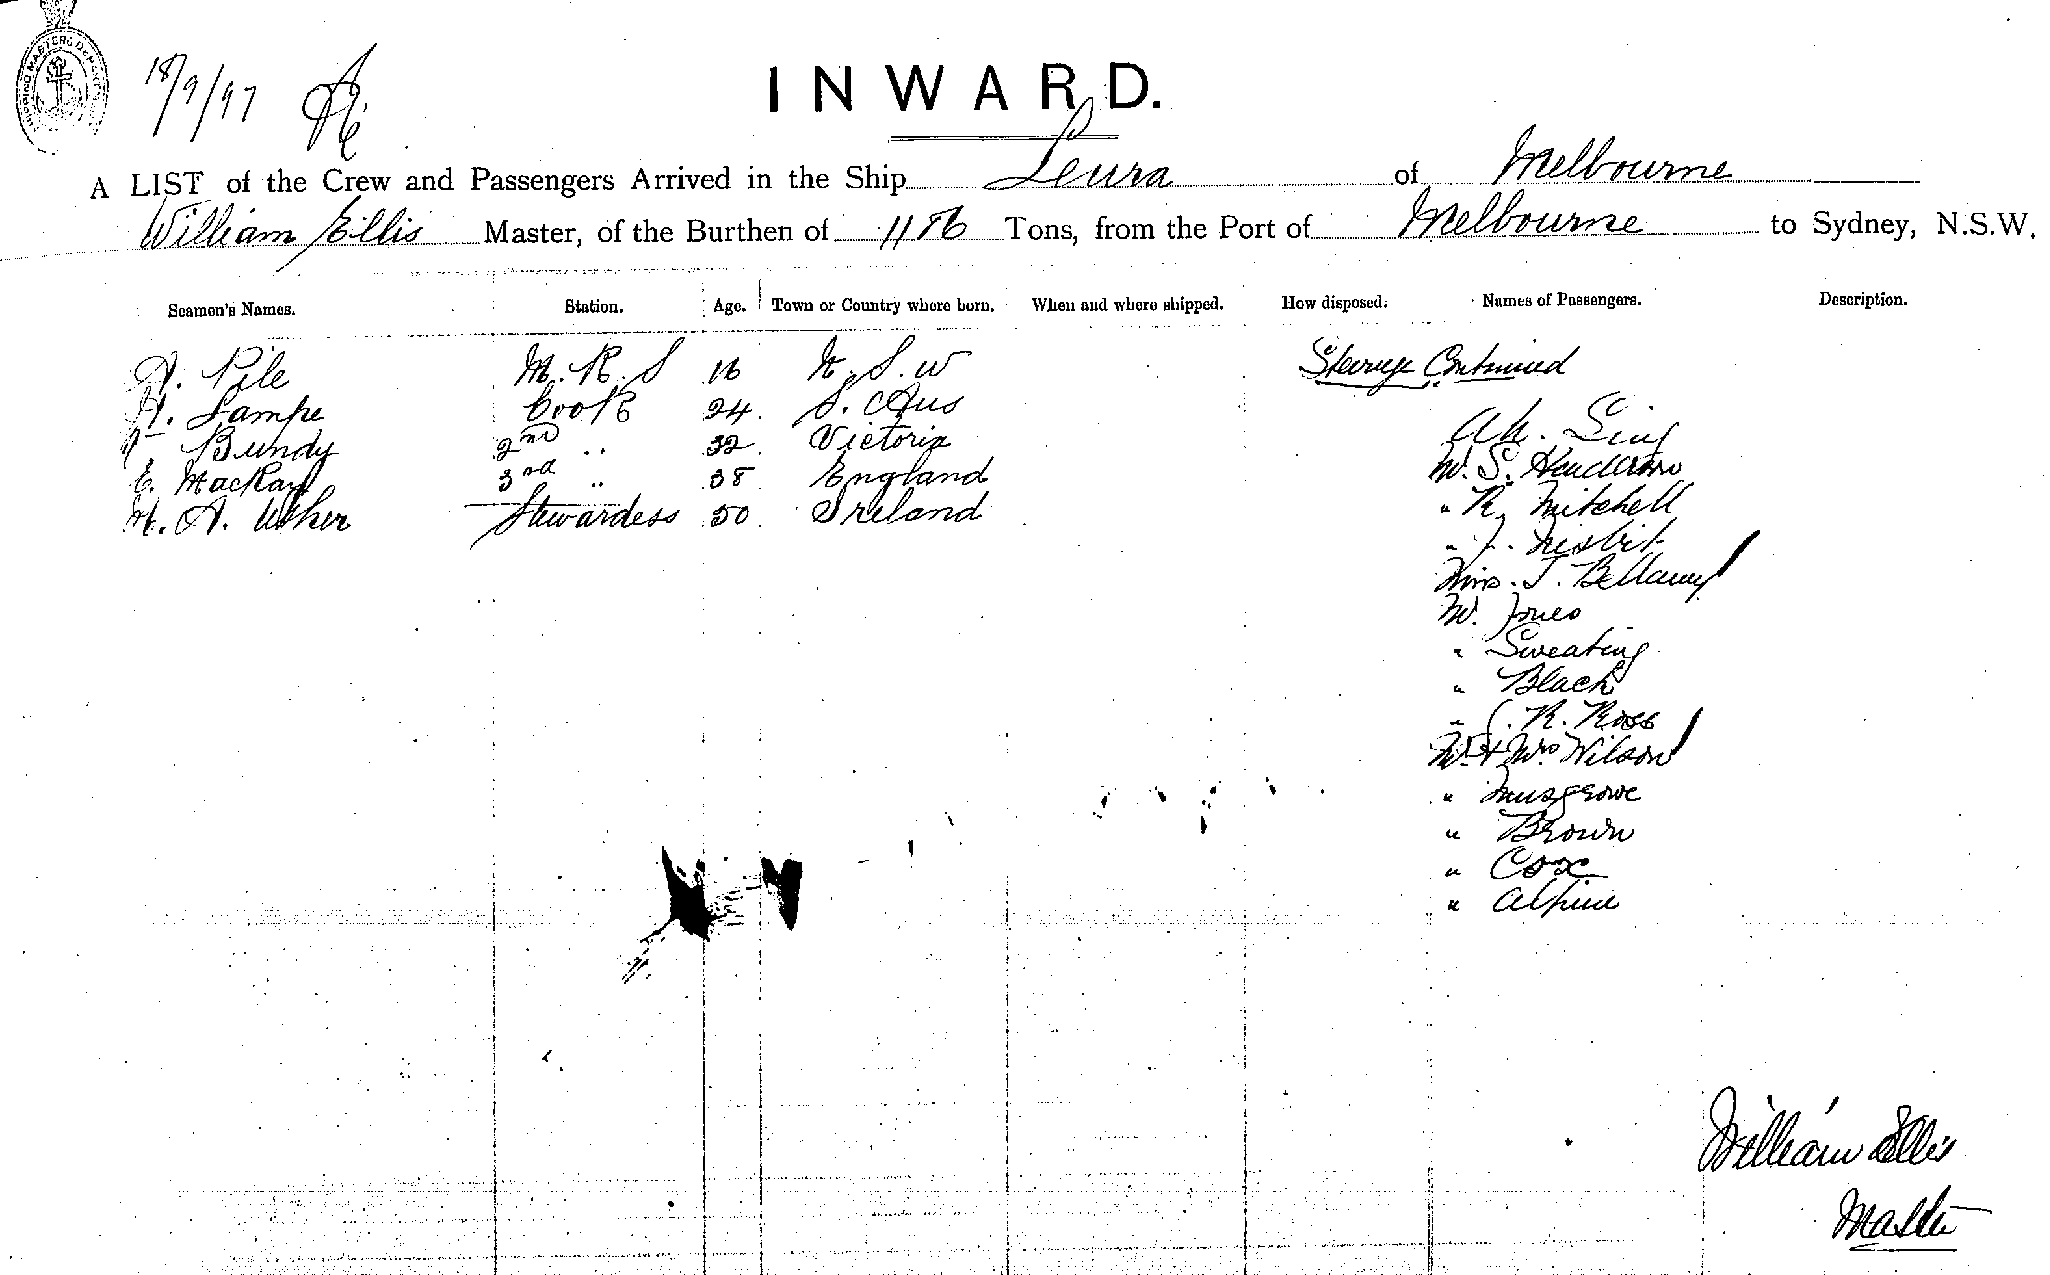 SHIPPING MASTERS DEPARTMENT
18/9/97
INWARD.
A LIST of the Crew and Passengers Arrived in the Ship Leura of Melbourne
William Ellis Master, of the Burthen of 1186 Tons, from the Port of Melbourne to Sydney, N.S.W.
Seamen's Names. Station. Age. Town or Country where born. When and where shipped. How disposed. Names of Passengers. Description.
A. Pile M. R. S 16 N. S. W
Steerage Continued
H. Lampe Cook 24. S. Aus
Ah. Sing
Bundy 2nd " 32 Victoria
W. S. Henderson
E. MacKay 3rd " 38 England
" R. Mitchell
H. A. Usher Stewardess 50 Ireland
" J. Nesbit
Mrs. J. Bellamy
Mr. Jones
" Sweating
" Black
" R. Ross
Mr + Mrs Wilson
" Musgrove
" Brown
" Cox
" Alpine
William Ellis
Master